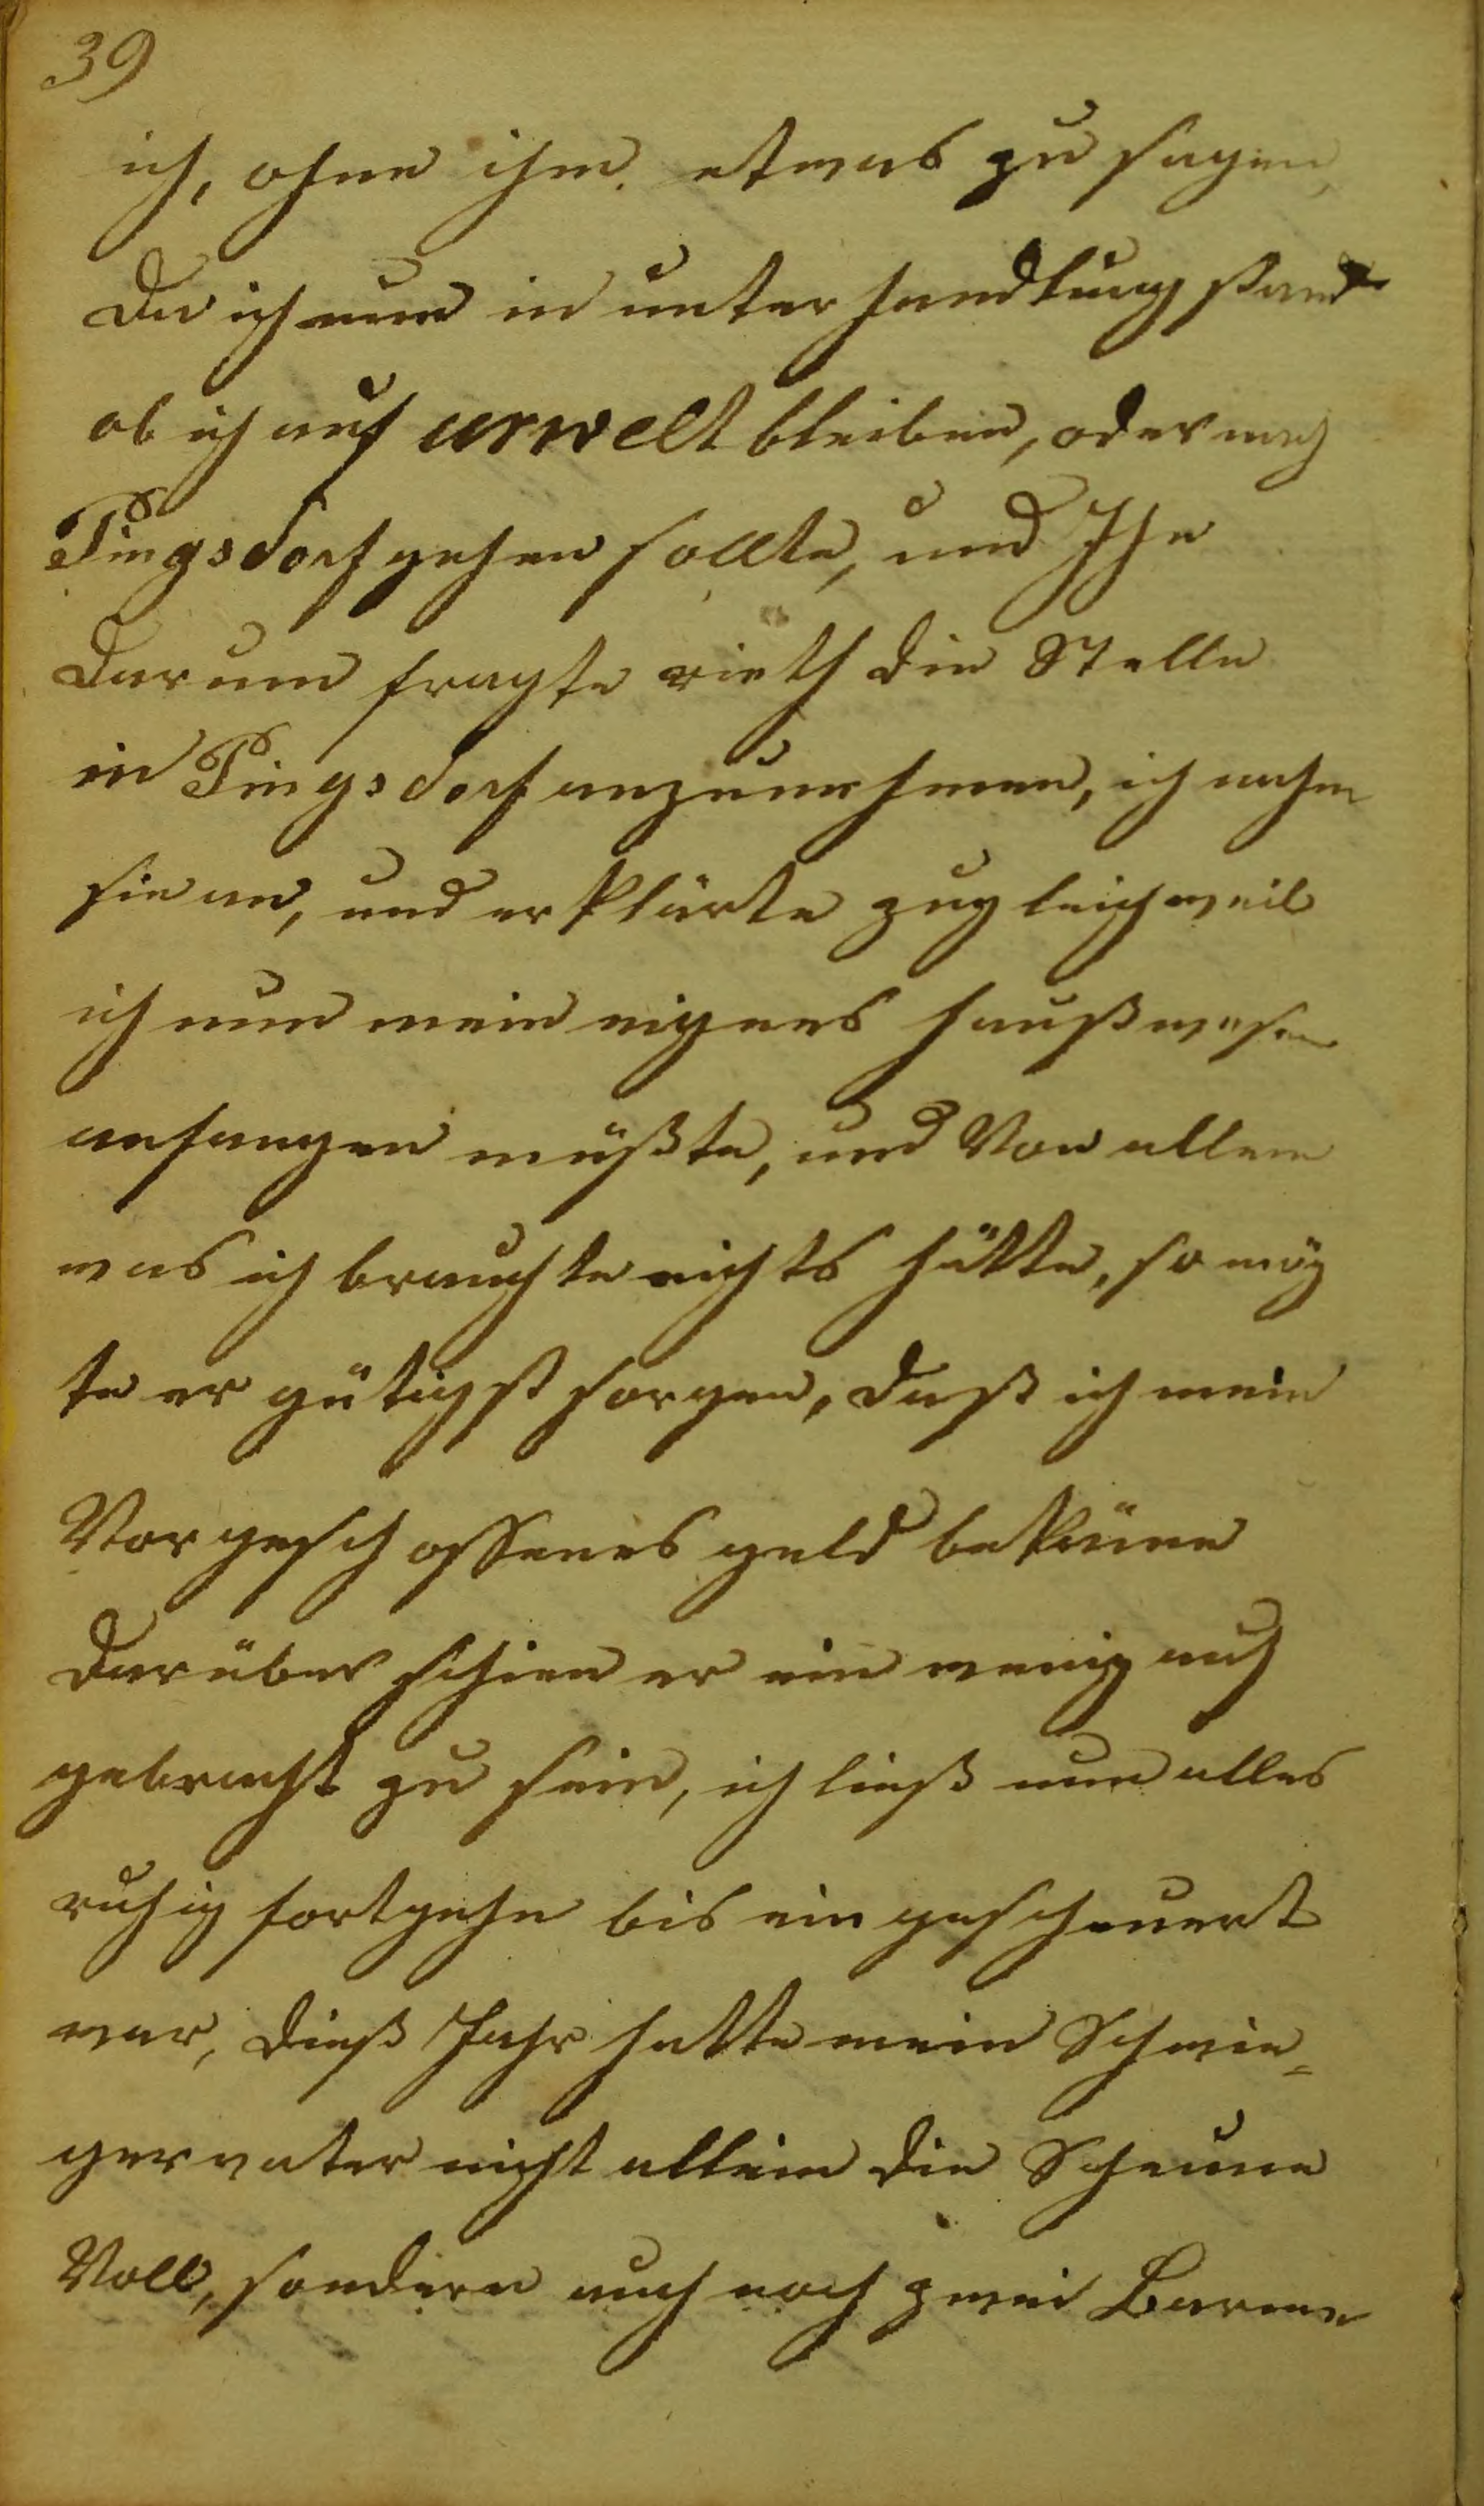 39
ich, ohne ihm etwas zu sagen,
Da ich nun in unterhandlung stand
ob ich auf urwelt bleiben, oder nach
Pingsdorf gehen sollte, und Ihn
darum fragte rieth die Stelle
in Pingsdorf anzunehmen, ich nahm
sie an, und erklärte zugleich weil
ich nun mein eigenes haußwesen
anfangen müßte, und Von allem
was ich brauchte nichts hätte, so mög
te er gütigst sorgen, daß ich mein
Vorgeschossenes geld bekäme
darüber schien er ein wenig auf
gebracht zu sein, ich ließ nun alles
ruhig fortgehn bis eingescheuert
war, dieß Jahr hatte mein Schwie=
gervater nicht allein die Scheune
Voll, sondern auch noch zwei Barmen